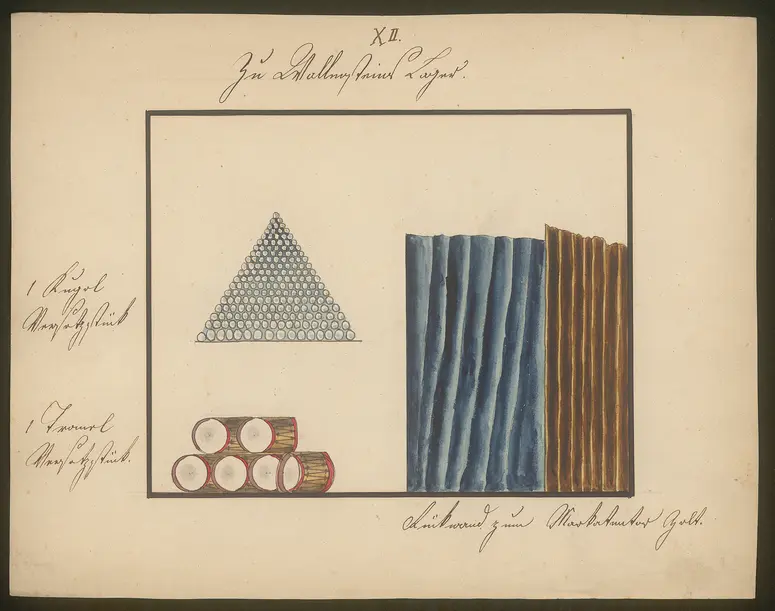 XII.
Zu Wallensteins Lager.
1 Kugel
Versetzstück
1 Tromel
Versetzstück.
Rückwand zum Markatentor Zelt.